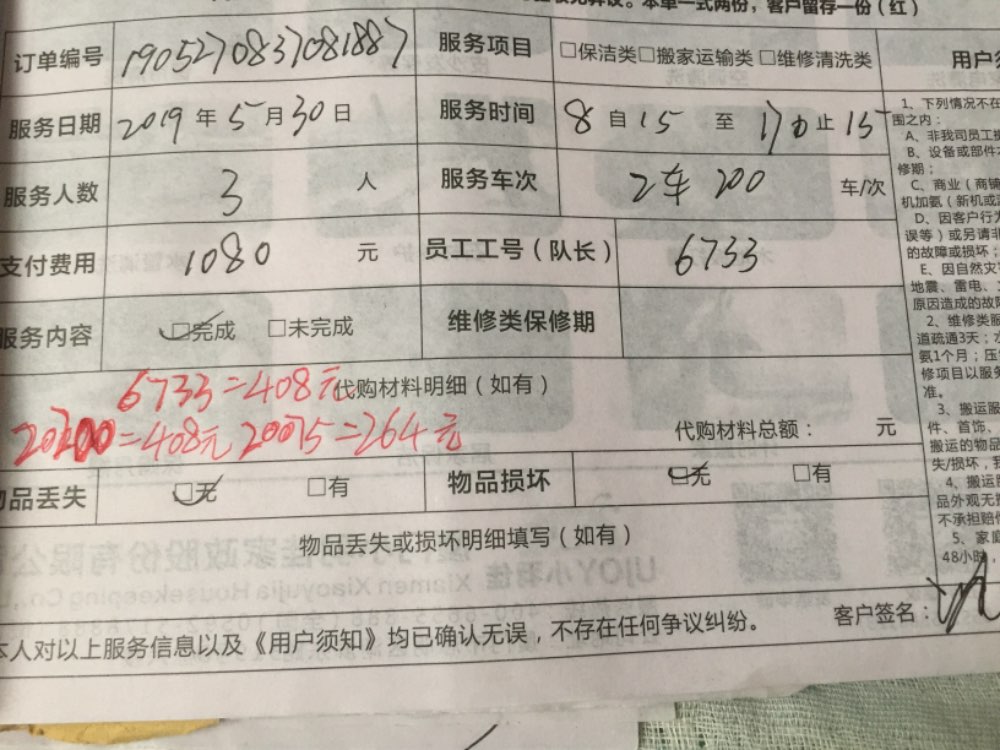 本单一式两份，客户留存一份（红）
订单编号 190527083708188 7 服务项目 □保洁类□搬家运输类□维修清洗类
用户须
服务日期 2019年5月30日 服务时间 8自15至17 止15
1、下列情况不在
围之内：
A、非我司员工
B、设备或部件
修期；
服务人数 3 人 服务车次 2车 200 车/次
C、商业（商铺
机加氨（新机或
D、因客户行为
误等）或另请非
的故障或损坏；
支付费用 1080 元 员工工号（队长） 6733
E、因自然灾
地震、雷电、
原因造成的故障
服务内容 □完成 □未完成 维修类保修期
2、维修类服
道疏通3天；
氨1个月；压
修项目以服务
准。
6733=408元
代购材料明细（如有）
=408元 20075=264元
代购材料总额： 元
3、搬运服
件、首饰、
搬运的物品
失/损坏，
物品丢失 □无 □有 物品损坏 □无 □有
4、搬运
品外观无损
不承担赔偿
物品丢失或损坏明细填写（如有）
5、家庭
48小时，
UJOY小羽佳 厦门小羽佳家政股份有限公
Xiamen Xiaoyujia Housekeeping Co.,
客户签名：
本人对以上服务信息以及《用户须知》均已确认无误，不存在任何争议纠纷。